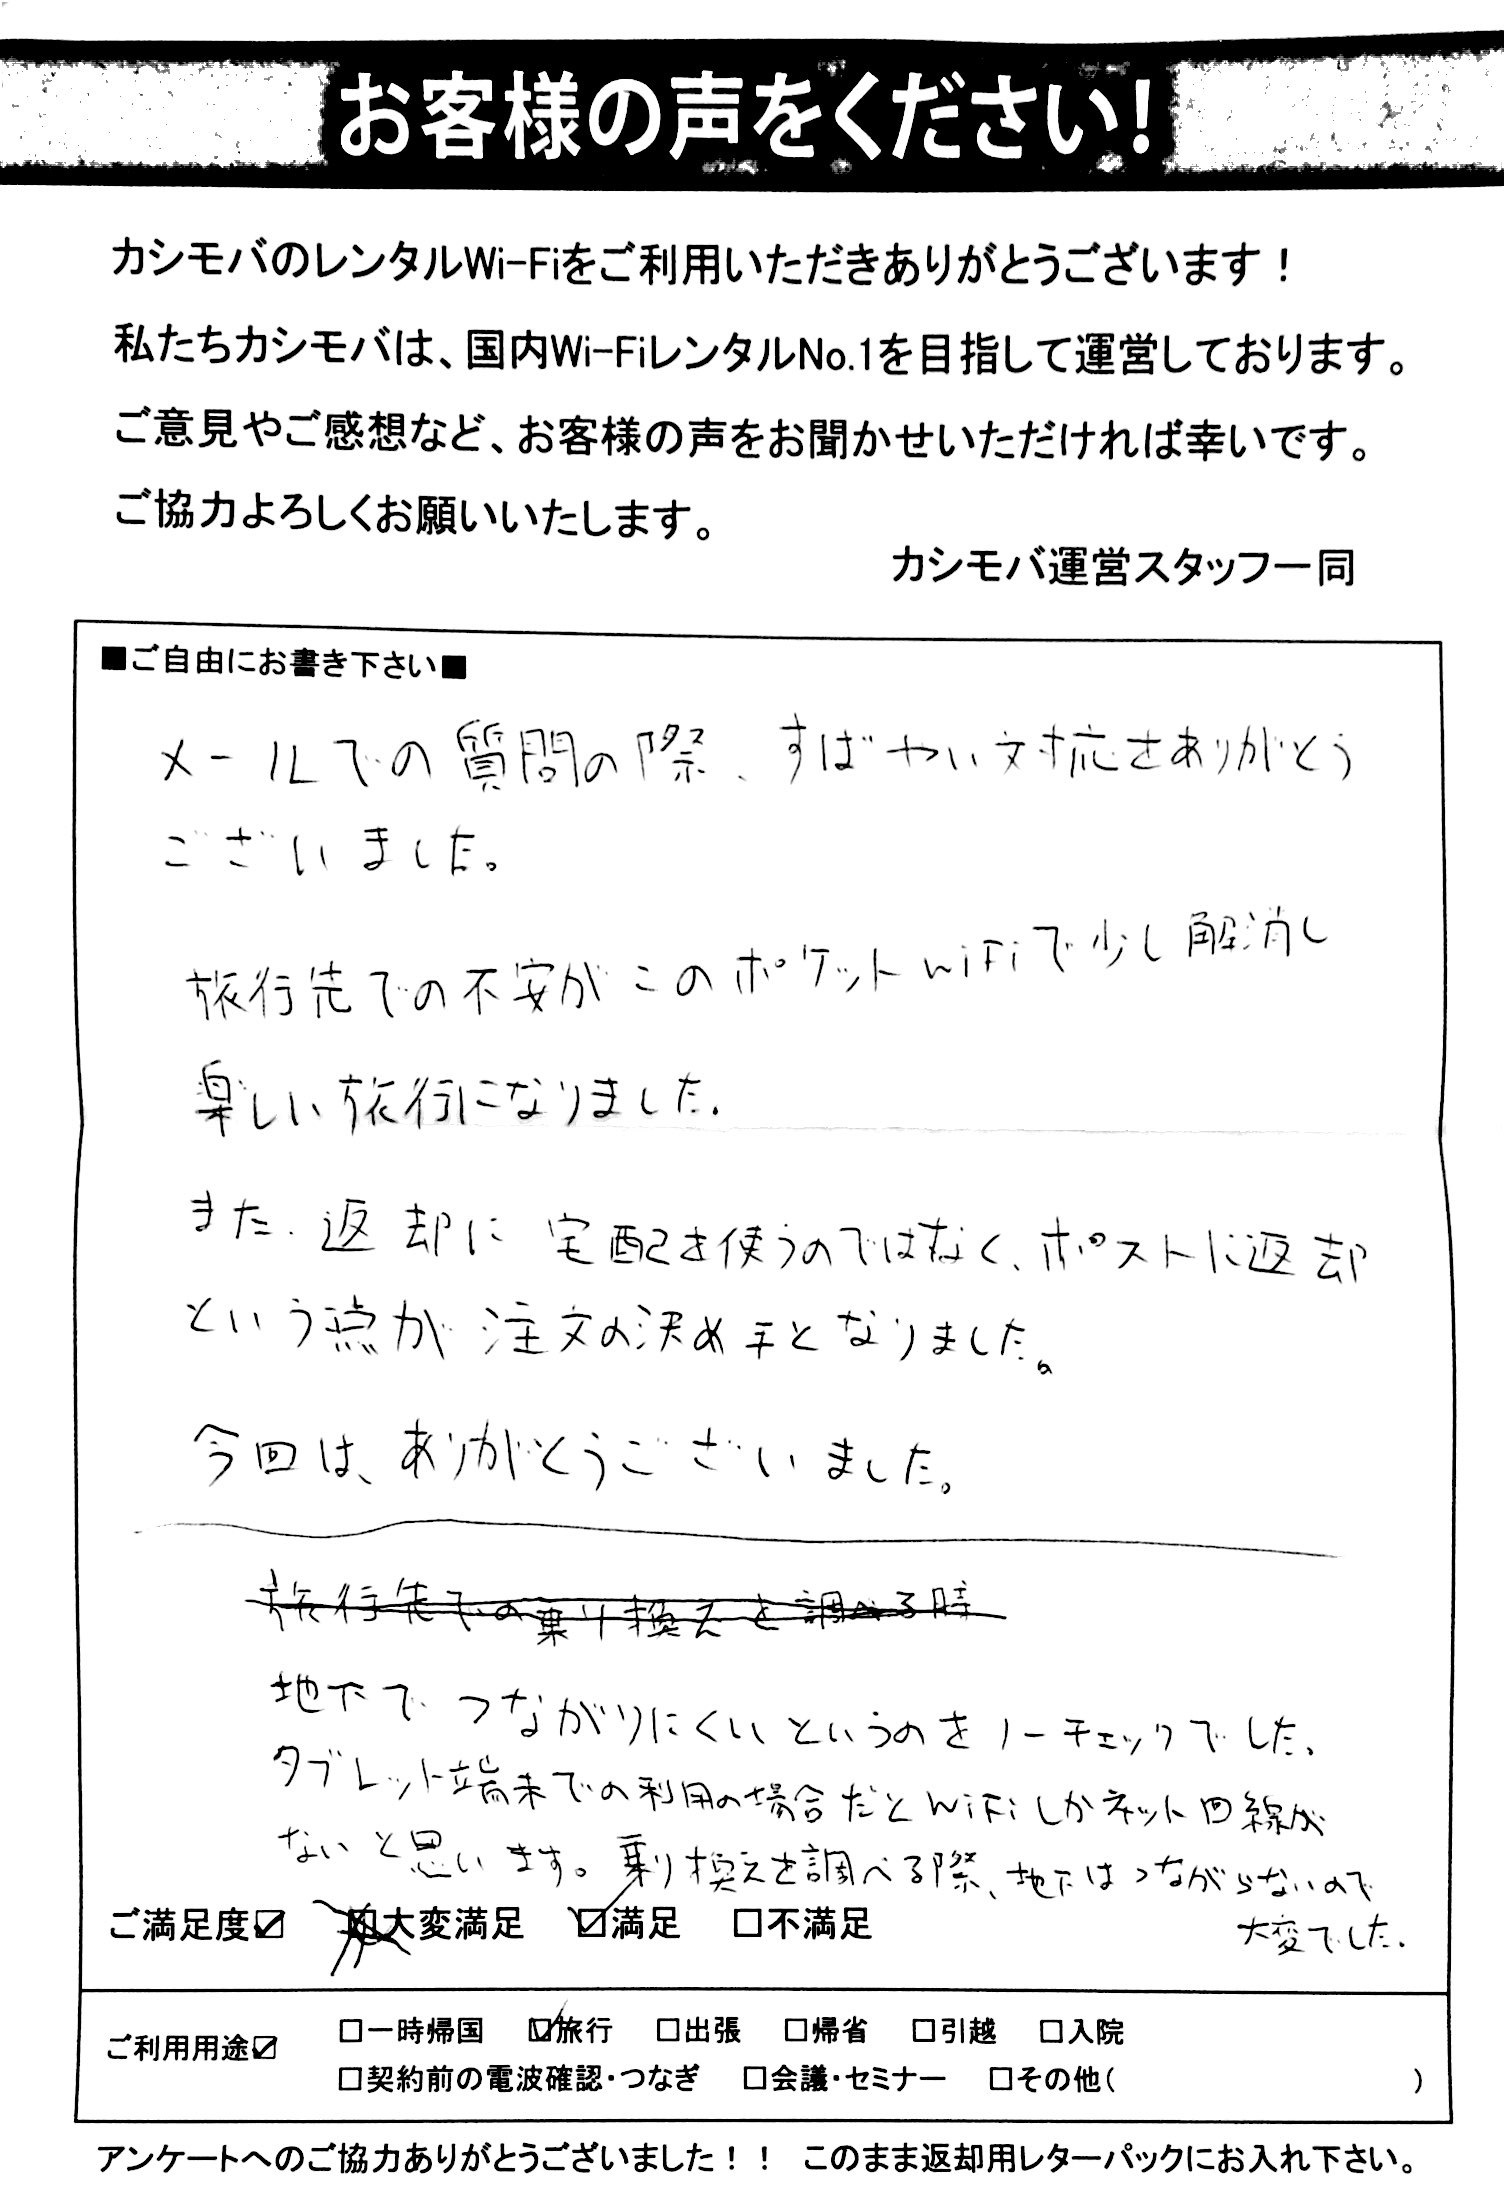 お客様の声をください!
カシモバのレンタルWi-Fiをご利用いただきありがとうございます!
私たちカシモバは、国内Wi-FiレンタルNo.1を目指して運営しております。
ご意見やご感想など、お客様の声をお聞かせいただければ幸いです。
ご協力よろしくお願いいたします。
カシモバ運営スタッフ一同
■ご自由にお書き下さい■
メールでの質問の際、すばやい対応をありがとう
ございました。
旅行先での不安がこのポケットWiFiで少し解消し
楽しい旅行になりました。
また、返却に宅配を使うのではなく、ポストに返却
という点が注文の決め手となりました。
今回は、ありがとうございました。
旅行先での乗り換えを調べる時
地下でつながりにくいというのをノーチェックでした。
タブレット端末での利用の場合だとWiFiしかネット回線が
ないと思います。乗り換えを調べる際、地下はつながらないので
大変でした。
ご満足度☑ ☑大変満足 ☑満足 □不満足
ご利用用途☑ □一時帰国 ☑旅行 □出張 □帰省 □引越 □入院
□契約前の電波確認・つなぎ □会議・セミナー □その他( )
アンケートへのご協力ありがとうございました!! このまま返却用レターパックにお入れ下さい。